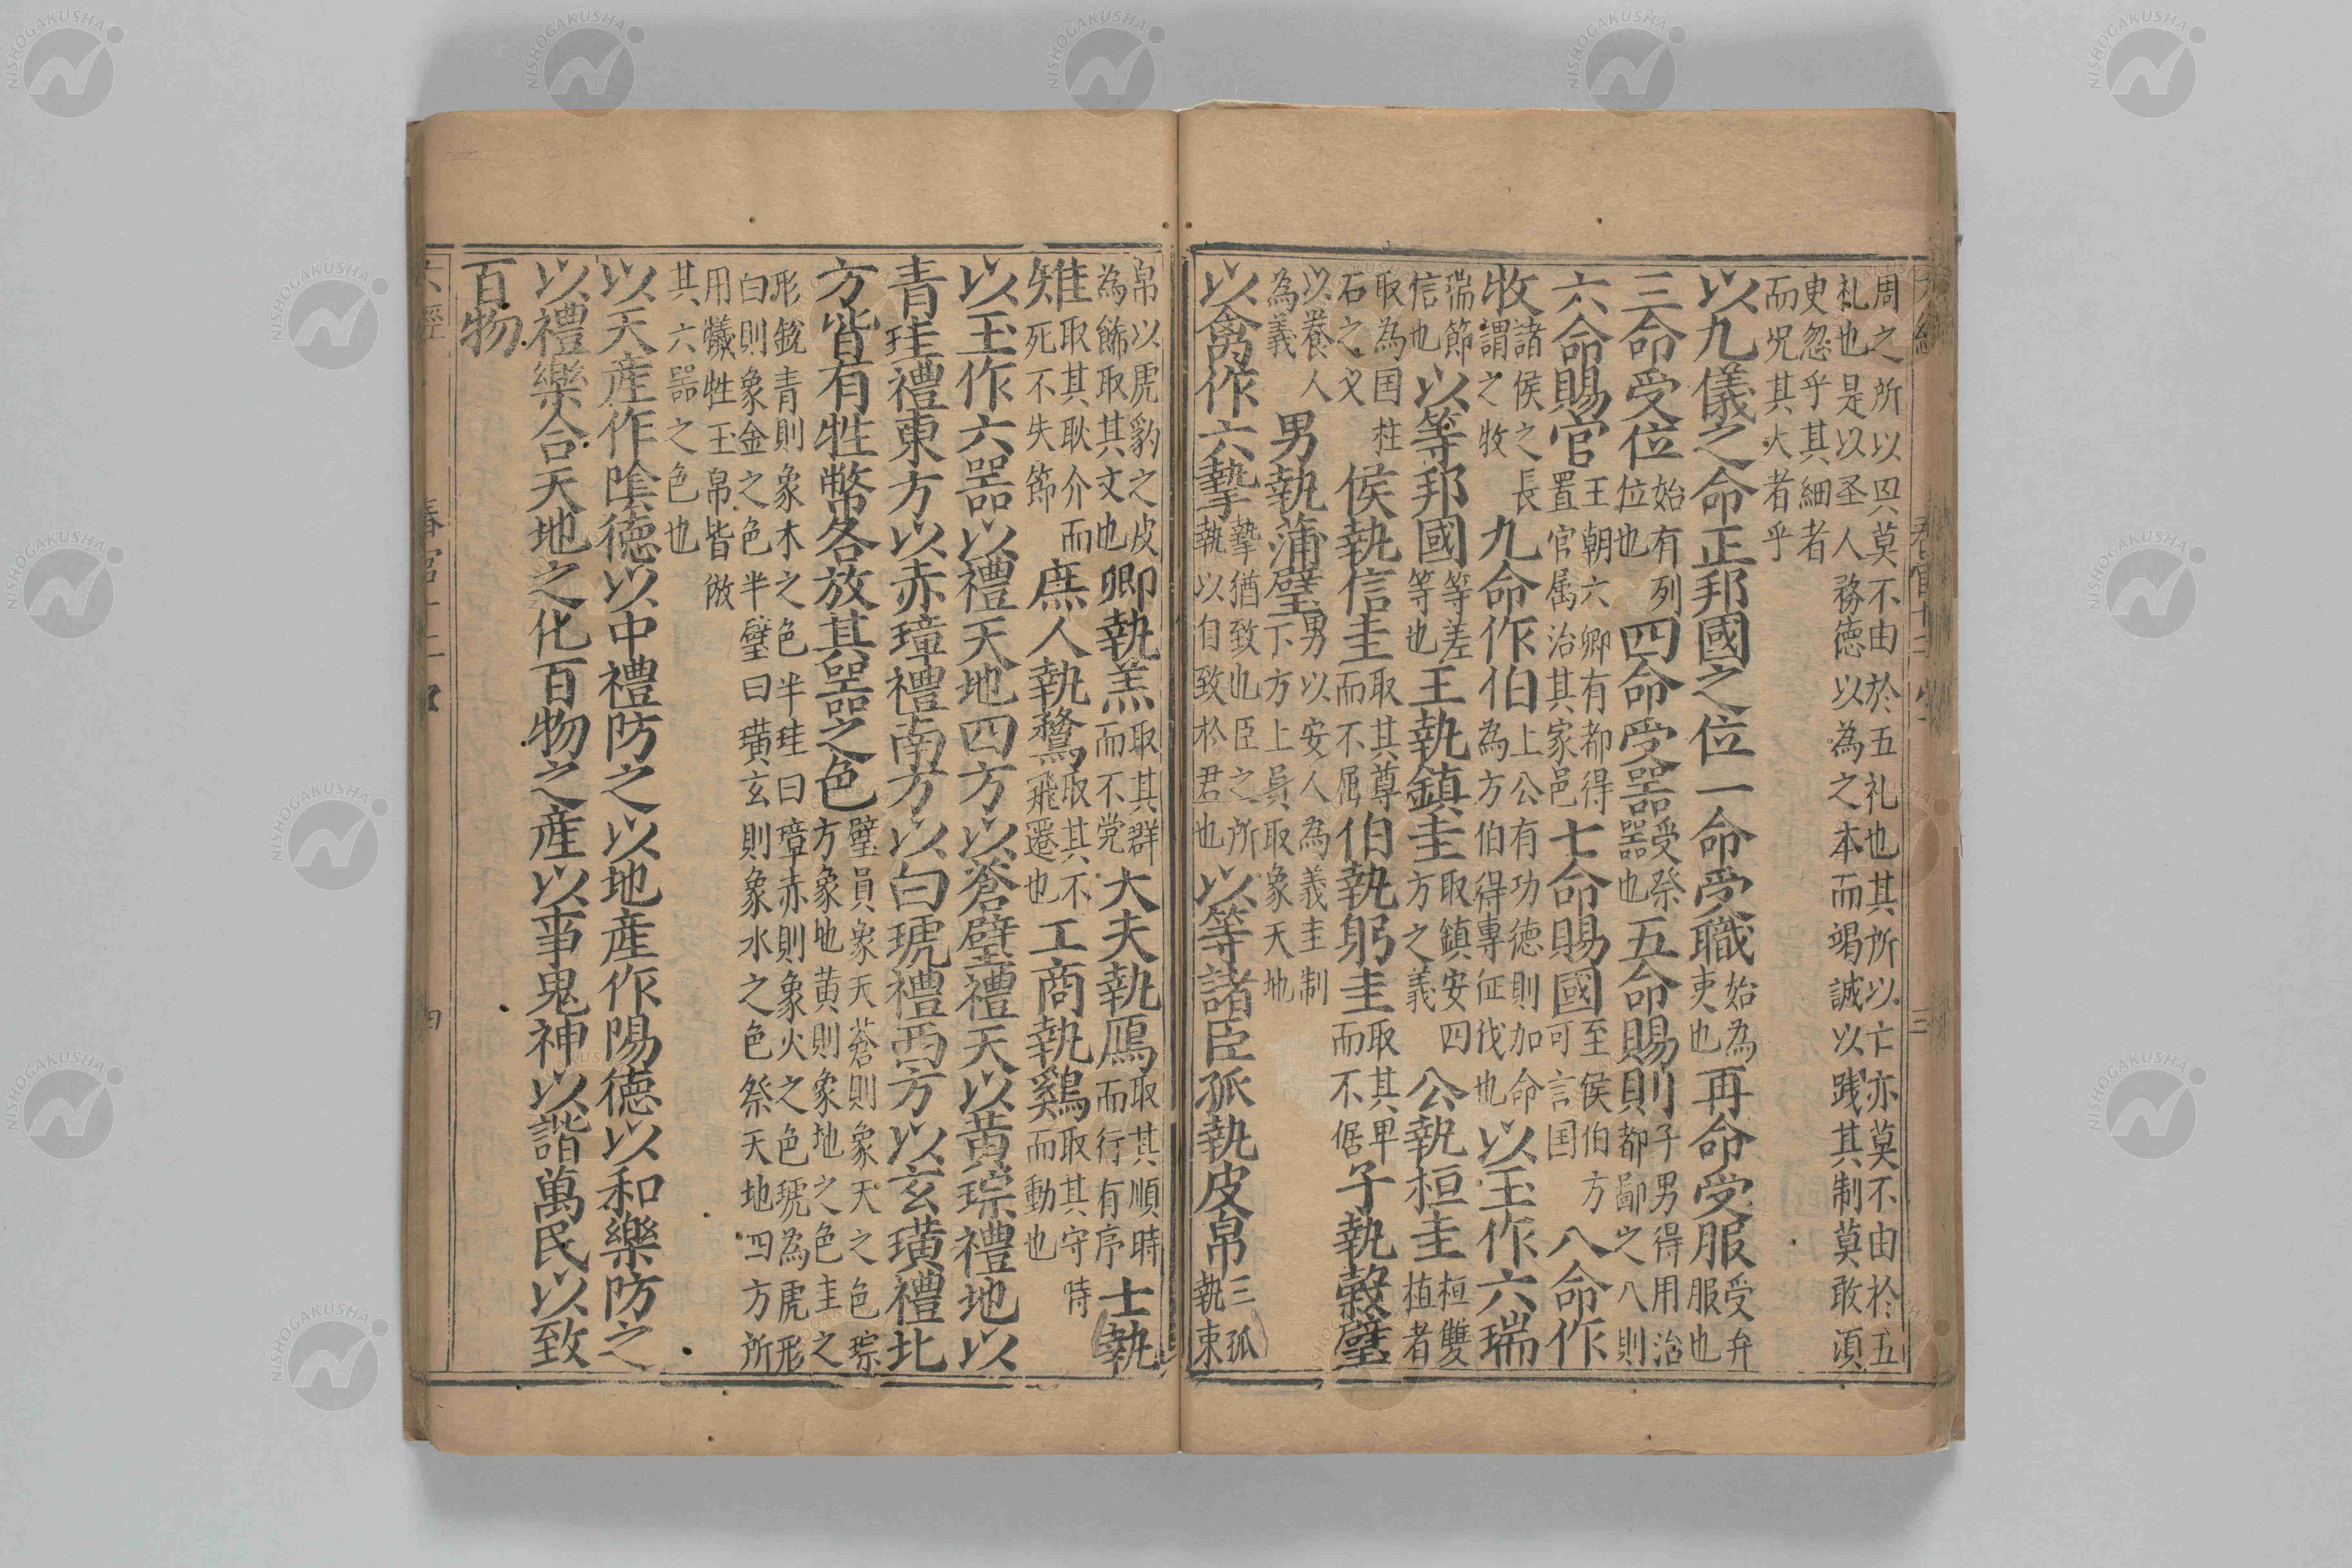 周之所以㒷莫不由於五礼也其所以亡亦莫不由於五
礼也是以圣人務徳以為之本而竭誠以践其制莫敢湏
臾忽乎其細者
而况其大者乎
以九儀之命正邦國之位一命受職始為吏也再命受服受弁服也
三命受位始有列位也四命受噐受祭噐也五命賜則子男得用治都鄙之八則
六命賜官王朝六卿有都得置官属治其家邑七命賜國至侯伯方可言国八命作
牧諸侯之長謂之牧九命作伯上公有功徳則加命為方伯得專征伐也以玉作六瑞
瑞節信也以等邦國等差等也王執鎮圭取鎮安四方之義公執桓圭桓雙植者
取為国柱石之义侯執信圭取其尊而不屈伯執躬圭取其卑而不倨子執榖璧
以養人為義男執蒲璧男以安人為義圭制下方上員取象天地
以禽作六摯摯猶致也臣之所執以自致於君也以等諸臣孤執皮帛三孤執束
帛以虎豹之皮為餙取其文也卿執羔取其群而不党大夫執鴈取其順時而行有序士執
雉取其耿介而死不失節庶人執鶩取其不飛遷也工商執鷄取其守時而動也
以玉作六噐以禮天地四方以蒼璧禮天以黃琮禮地以
青珪禮東方以赤璋禮南方以白琥禮西方以玄璜禮北
方皆有牲幣各放其噐之色璧員象天蒼則象天之色琮方象地黄則象地之色圭之
形銳青則象木之色半珪曰璋赤則象火之色琥為虎形
白則象金之色半璧曰璜玄則象水之色祭天地四方所
用犧牲玉帛皆倣
其六噐之色也
以天產作陰德以中禮防之以地產作陽德以和樂防之
以禮樂合天地之化百物之產以事鬼神以諧萬民以致
百物
六經 春官十二 四
NISHOGAKUSHA